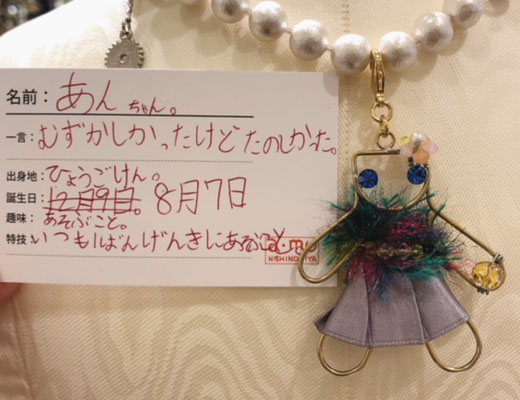 名前：あんちゃん。
一言：むずかしかったけどたのしかった。
出身地：ひょうごけん。
誕生日：12月9日。8月7日
趣味：あそぶこと。
特技：いつも1ばんげんきにあそぶこと
NISHINOMIYA